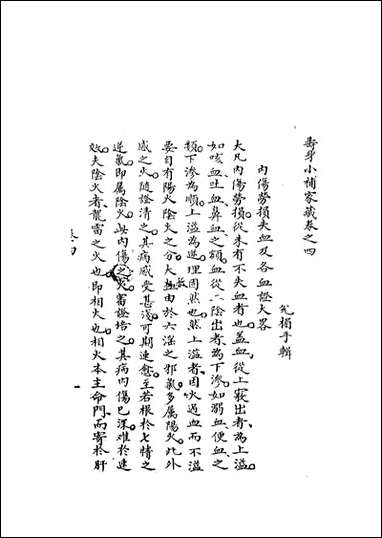 壽身小補家藏卷之四
兊楣手輯
內傷勞損失血及各血證大畧
大凡內傷勞損從未有不失血者也蓋血從上竅出者為上溢
如咳血吐血鼻血之類血從二陰出者為下滲如溺血便血之
類下滲為順上溢為逆理固然也然上溢者因火逼血而不溢
要自有陽火陰火之分大抵由於六淫之邪氣多屬陽火此外
感之火隨證清之其病感受甚淺可期速愈至若根於七情之
逆氣即屬陰火此內傷之火審證培之其病內傷已深難於速
效夫陰火者龍雷之火也即相火也相火本主命門而寄於肝
卷四
一